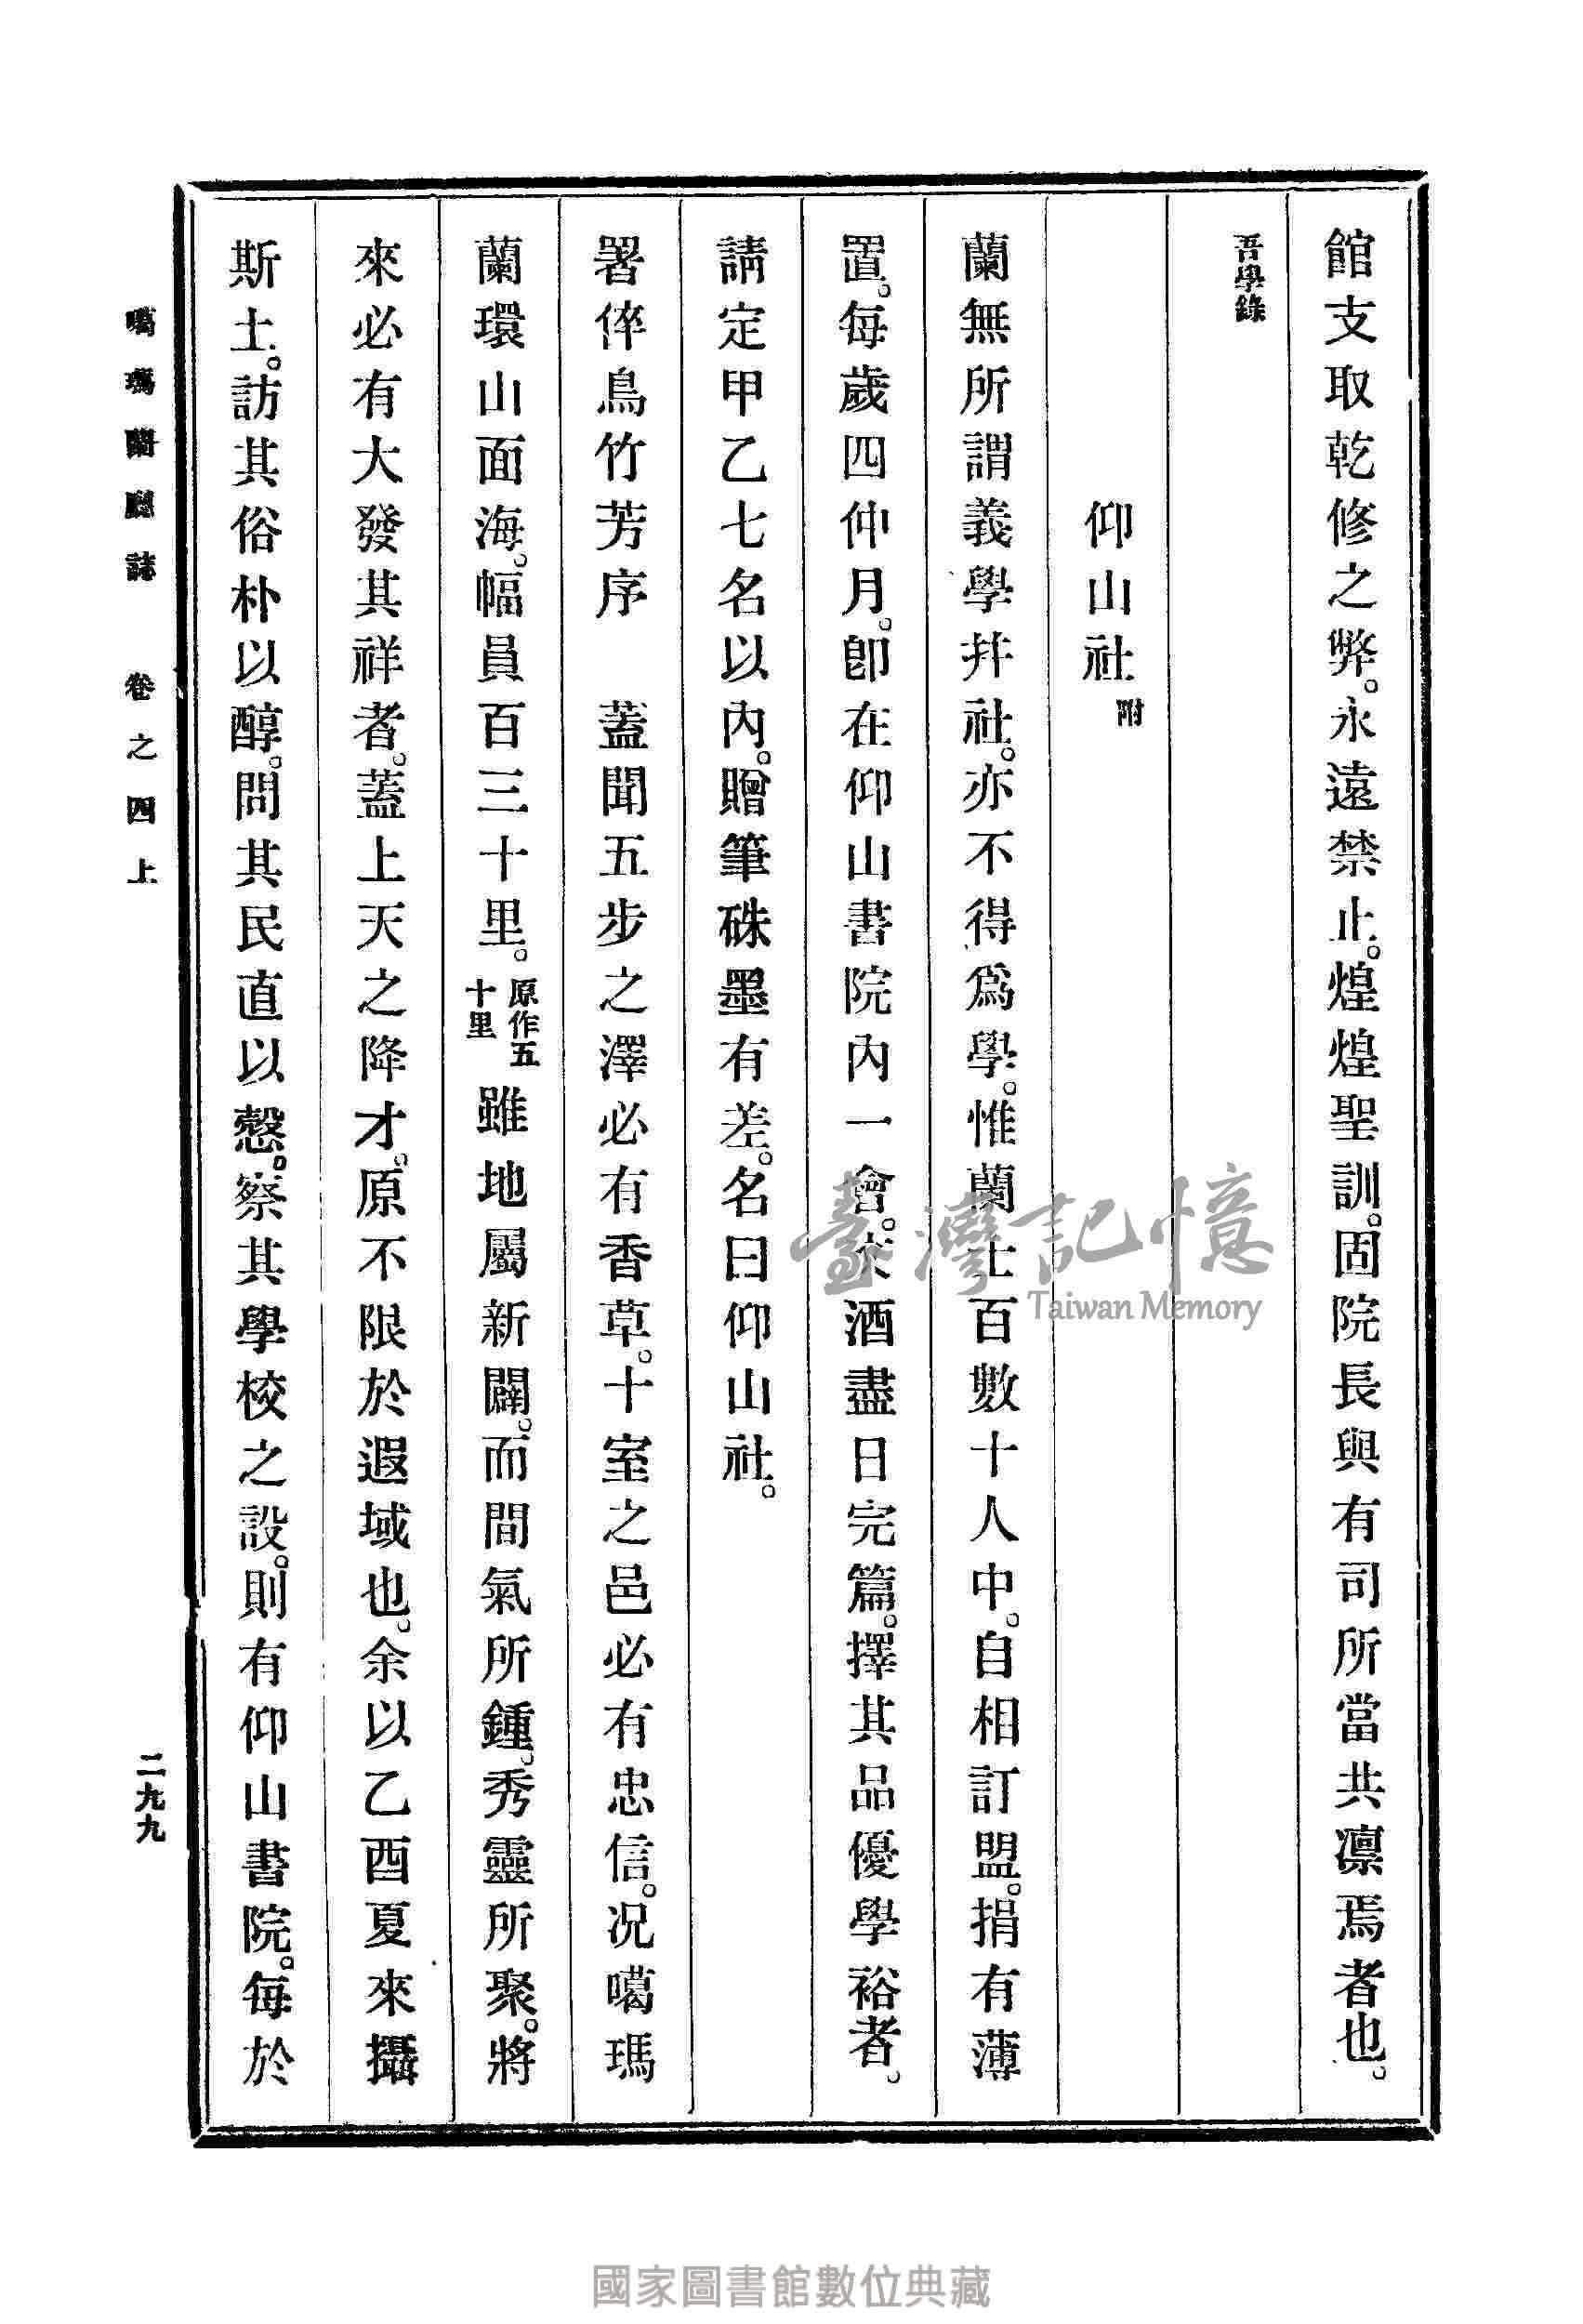 館支取乾修之弊。永遠禁止。煌煌聖訓。固院長與有司所當共凛焉者也。
吾學錄
仰山社附
蘭無所謂義學幷社。亦不得爲學。惟蘭士百數十人中。自相訂盟。捐有薄
置。每歲四仲月。卽在仰山書院內一會。茨酒盡日完篇。擇其品優學裕者。
請定甲乙七名以內。贈筆硃墨有差。名曰仰山社。
署倅烏竹芳序　蓋聞五步之澤必有香草。十室之邑必有忠信。况噶瑪
蘭環山面海。幅員百三十里。原作五十里雖地屬新闢。而間氣所鍾。秀靈所聚。將
來必有大發其祥者。蓋上天之降才。原不限於遐域也。余以乙酉夏來攝
斯土。訪其俗朴以醇。問其民直以慤。察其學校之設。則有仰山書院。每於
噶瑪蘭廳誌　卷之四上
二九九
臺灣記憶
Taiwan Memory
國家圖書館數位典藏